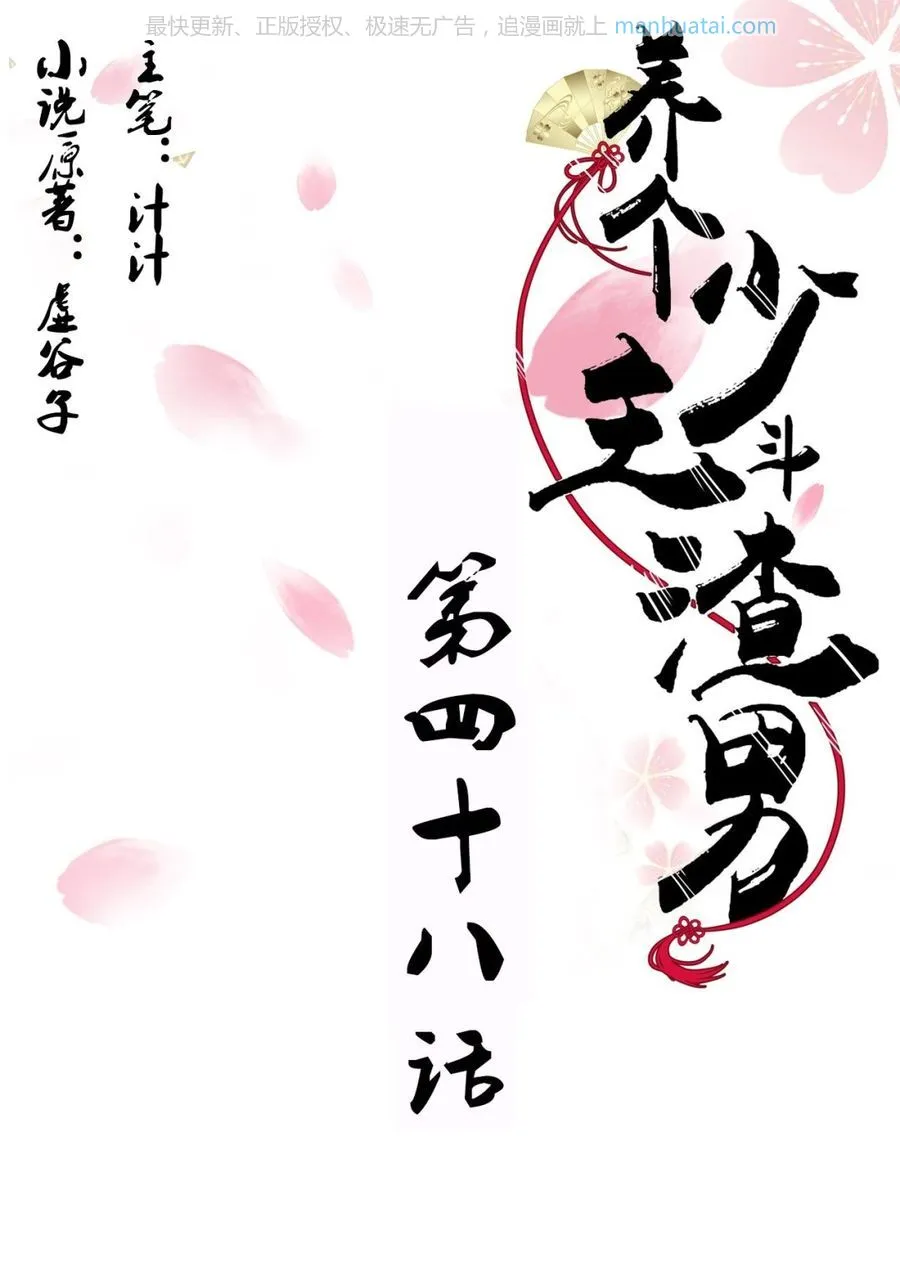 最快更新、正版授权、极速无广告，追漫画就上 manhuatai.com
养个少主斗渣男
第四十八话
主笔：计计
小说原著：虚谷子